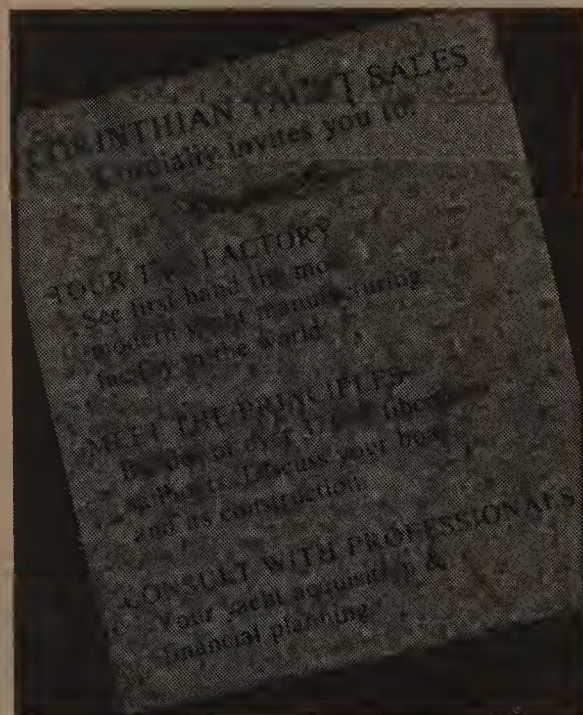 CORINTHIAN YACHT SALES
Cordially invites you to:
TOUR THE FACTORY
See first hand the
modern yacht manufacturing
facility in the world
MEET THE PRINCIPLES
of over
Discuss your
and its construction.
CONSULT WITH PROFESSIONALS
Your yacht acquisition &
financial planning